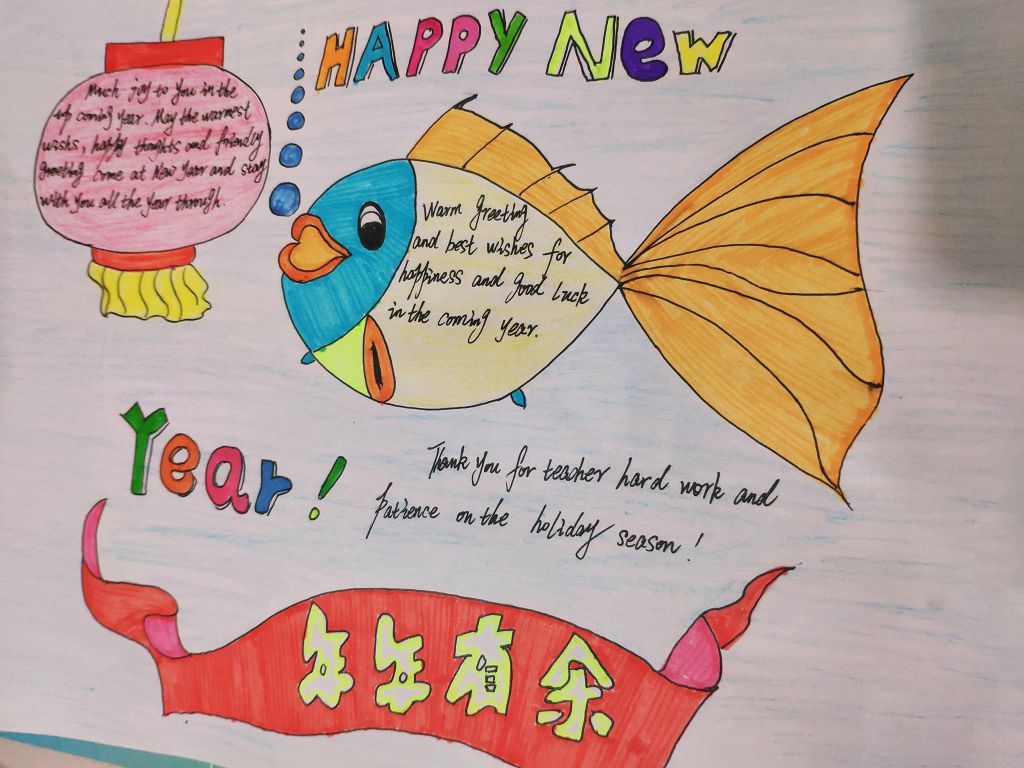 HAPPY NEW
Much joy to you in the
up coming year. May the warmest
wishs, happy thoughts and friendly
greeting come at New Year and stay
with you all the year through.
Warm greeting
and best wishes for
happiness and good luck
in the coming year.
Year!
Thank you for teacher hard work and
patience on the holiday season!
年年有余